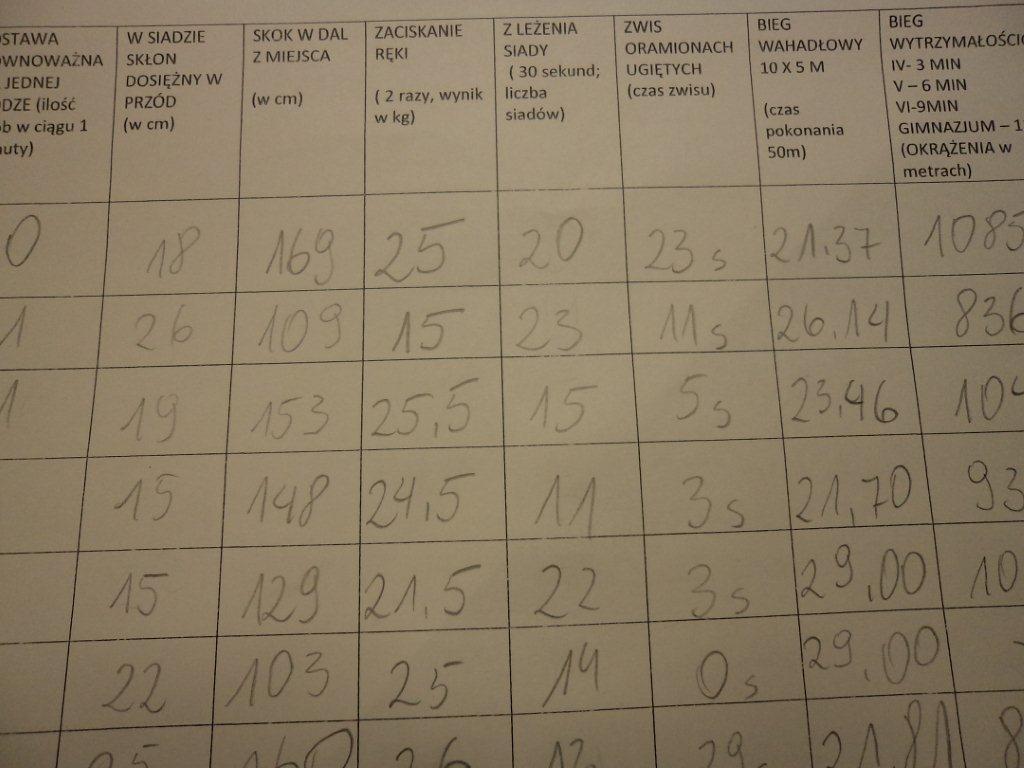 W SIADZIE
SKŁON
DOSIĘŻNY W
PRZÓD
(w cm)
SKOK W DAL
Z MIEJSCA
(w cm)
ZACISKANIE
RĘKI
( 2 razy, wynik
w kg)
Z LEŻENIA
SIADY
( 30 sekund;
liczba
siadów)
ZWIS
ORAMIONACH
UGIĘTYCH
(czas zwisu)
BIEG
WAHADŁOWY
10 X 5 M
(czas
pokonania
50m)
BIEG
IV- 3 MIN
V – 6 MIN
VI-9MIN
GIMNAZJUM –
(OKRĄŻENIA w
metrach)
JEDNEJ
(ilość
w ciągu 1
0 18 169 25 20 23 s 21.37 1085
1 26 109 15 23 11 s 26.14 836
1 19 153 25,5 15 5 s 23,46
15 148 24,5 11 3 s 21,70
15 129 21,5 22 3 s 29,00
22 103 25 14 0 s 29,00
21,81